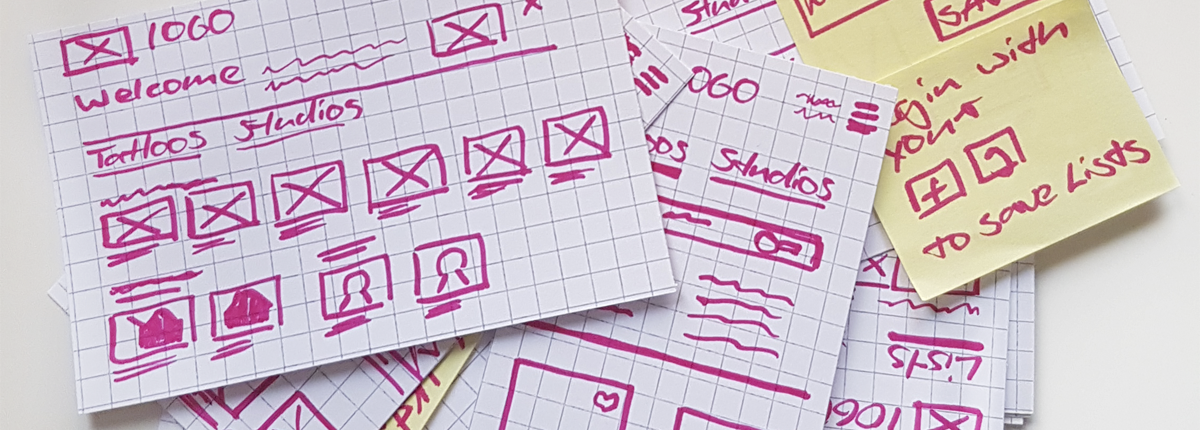 LOGO
Welcome
Tattoos Studios
OGO
oos Studios
Studio
SA
gin with
your
to save Lists
Lists
LOGO